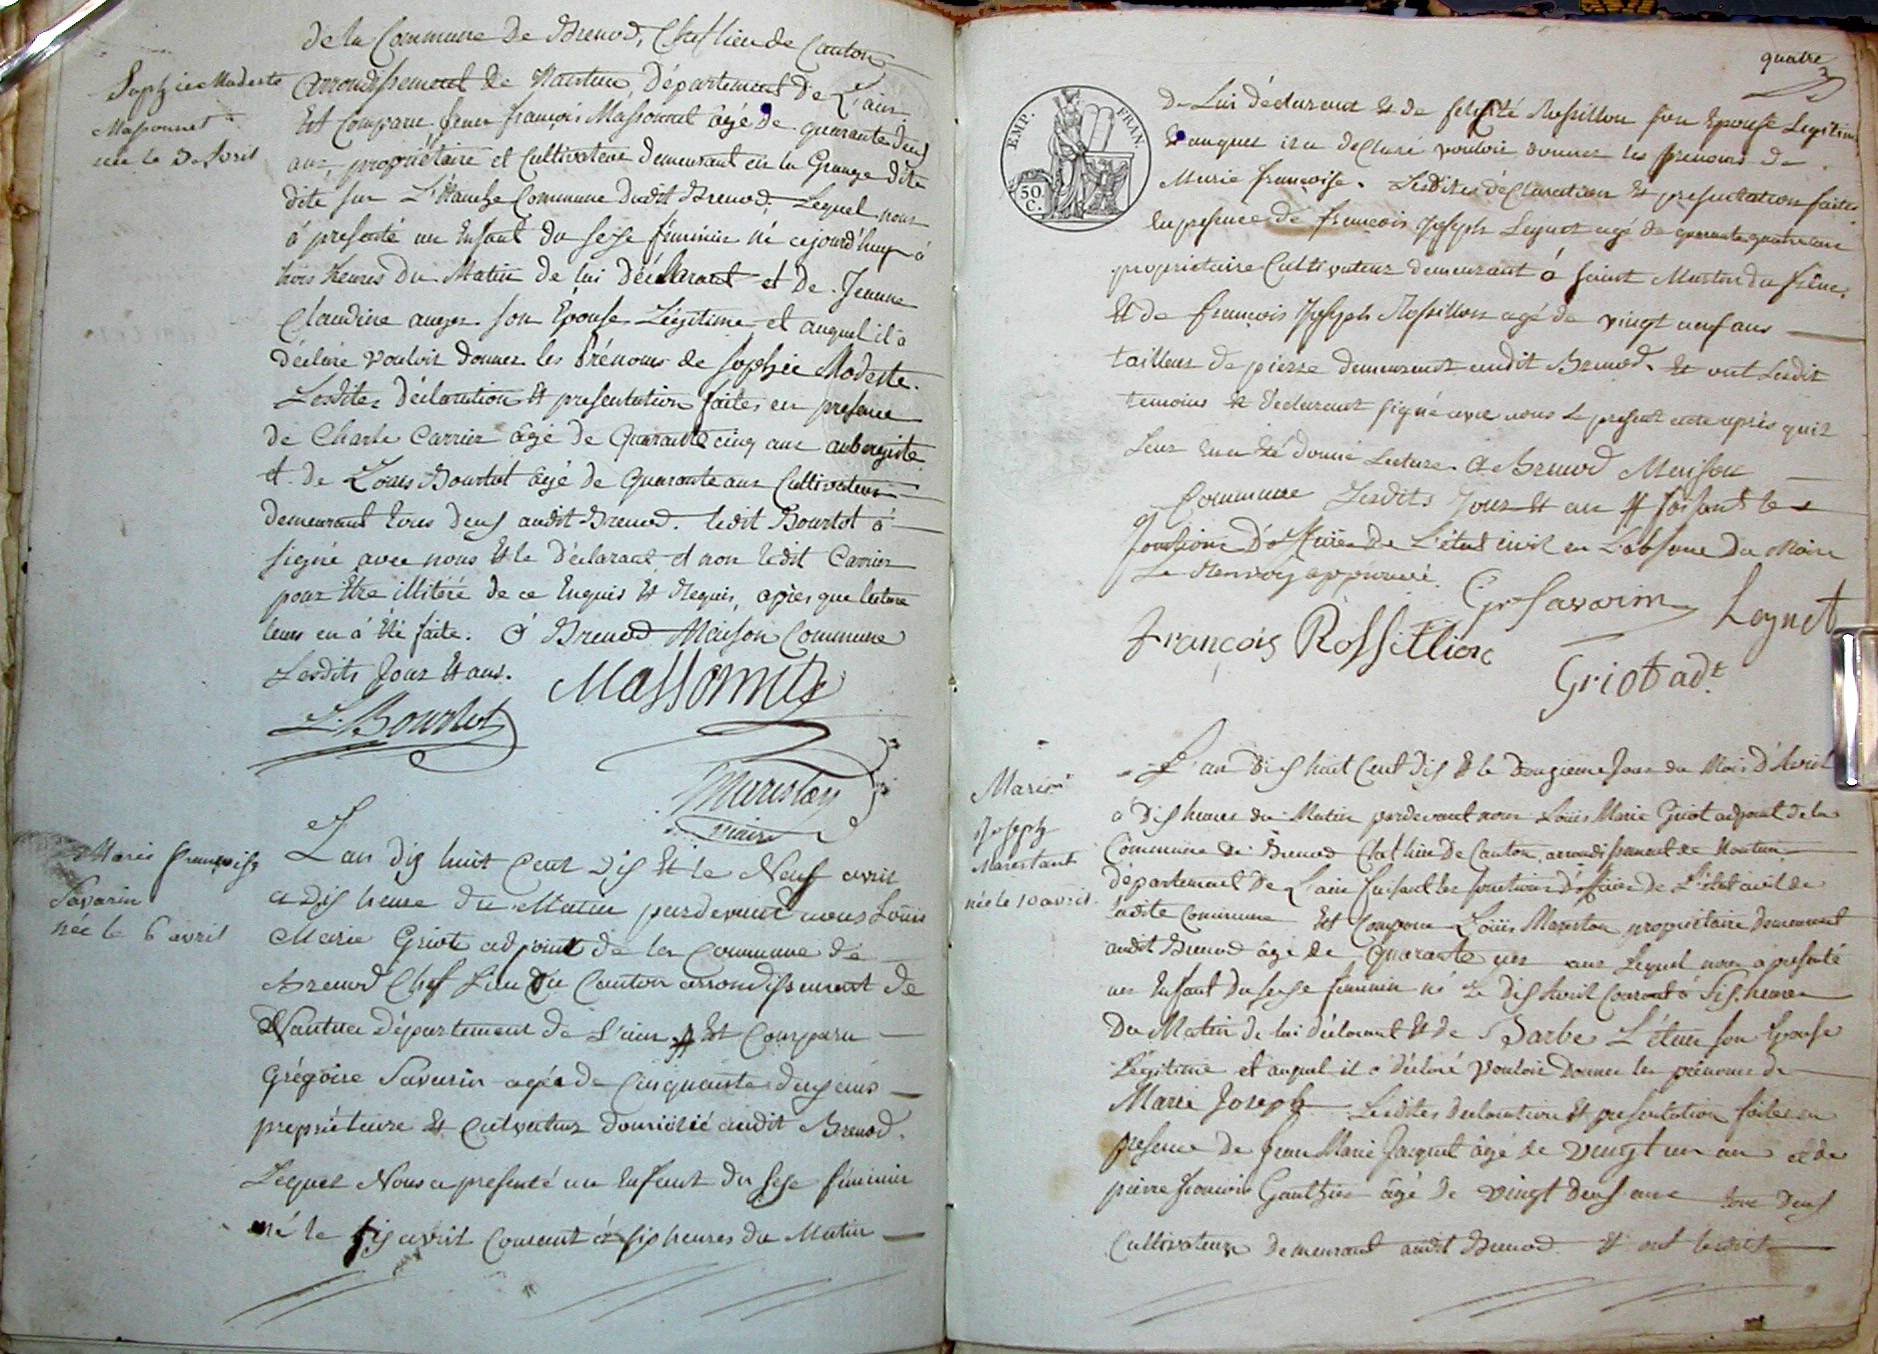 de la Commune de Brenod, Chef lieu de Canton
Sophie Modeste
Massonnet
née le 3 Avril
arrondissement de Nantua, Département de L'ain.
Est Comparu Jean françois Massonnet âgé de quarante deux
ans, propriétaire et Cultivateur demeurant en la Grange dite
dite sur L'Etanche Commune dudit Brenod, Lequel nous
à presenté un Enfant du sexe féminin né cejourd'huy à
trois heures du Matin de lui Déclarant et de Jeanne
Claudine auger son Epouse Légitime et auquel il a
Déclaré vouloir donner les Prénoms de Sophie Modeste.
Lesdites Déclaration et presentation faites en presence
de Charle Carrier âgé de Quarante cinq ans aubergiste
et de Louis Bourtot âgé de Quarante ans Cultivateur
demeurant tous deux audit Brenod. ledit Bourtot à
signé avec nous et le Déclarant et non ledit Carrier
pour être illitéré de ce Enquis et Requis, après que lecture
leur en à été faite. à Brenod Maison Commune
Lesdits Jour et ans.
Massonnet
L. Bourtot
Marestan
maire
Marie françoise
Savarin
née le 6 avril
L'an dix huit Cent Dix Et le Neuf avril
a Dix heure du Matin pardevant nous Louis
Marie Griot adjoint de la Commune de
Brenod Chef Lieu Du Canton arrondissement de
Nantua Département de L'ain # Est Comparu
Grégoire Savarin agée de Cinquante deux ans
propriétaire Et Cultivateur domicilié audit Brenod.
Lequel Nous a presenté un Enfant du sexe féminin
né le six avril Courant à six heures du Matin
quatre
EMP. FRAN.
50 C.
de Lui déclarant Et de felicité Rossillon son Epouse Legitime
Et auquel il a declaré vouloir donner les prenoms de
Marie françoise. Lesdites déclaration Et presentation faites
En presence de françois Joseph Leynet agé de quarante quatre ans
propriétaire Cultivateur demeurant à saint Martin du frêne.
Et de françois Joseph Rossillon agé de vingt neuf ans
tailleur de pierre demeurant audit Brenod. Et ont Lesdit
temoins et declarant signé avec nous Le present acte après quil
Leur En a été donné Lecture. A Brenod Maison
Commune Lesdits Jour Et an # faisant les
fonctions D'officier De L'état civil en L'absence Du Maire
Le Renvoy approuvé.
Gr Savarin
Leynet
François Rossillion
Griot adt
Marie
Joseph
Marestant
née le 10 avril.
L'an Dix huit Cent dix Et le Douzieme Jour du Mois D'Avril
à Dix heures du Matin pardevant nous Louis Marie Griot adjoint de la
Commune de Brenod Chef lieu de Canton, arrondissement de Nantua
département de L'ain faisant les fonctions d'officier de L'état civil de
ladite Commune Est Comparu Louis Marestan propriétaire Demeurant
audit Brenod âgé de Quarante ans Lequel nous a presenté
un Enfant du sexe féminin né Le Dix Avril Courant à six heures
Du Matin de lui déclarant Et de Barbe L'étan son Epouse
Légitime et auquel il a Déclaré Vouloir Donner les prénoms de
Marie Joseph Lesdites declaration Et presentation faites en
presence de Jean Marie Jacquet âgé de vingt un an et de
pierre françois Gauthier âgé de vingt deux ans tous deux
Cultivateurs demeurant audit Brenod. Et ont lesdits